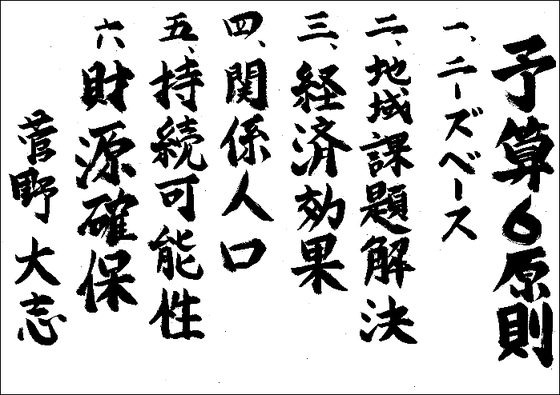 予算6原則
一、ニーズベース
二、地域課題解決
三、経済効果
四、関係人口
五、持続可能性
六、財源確保
菅野大志